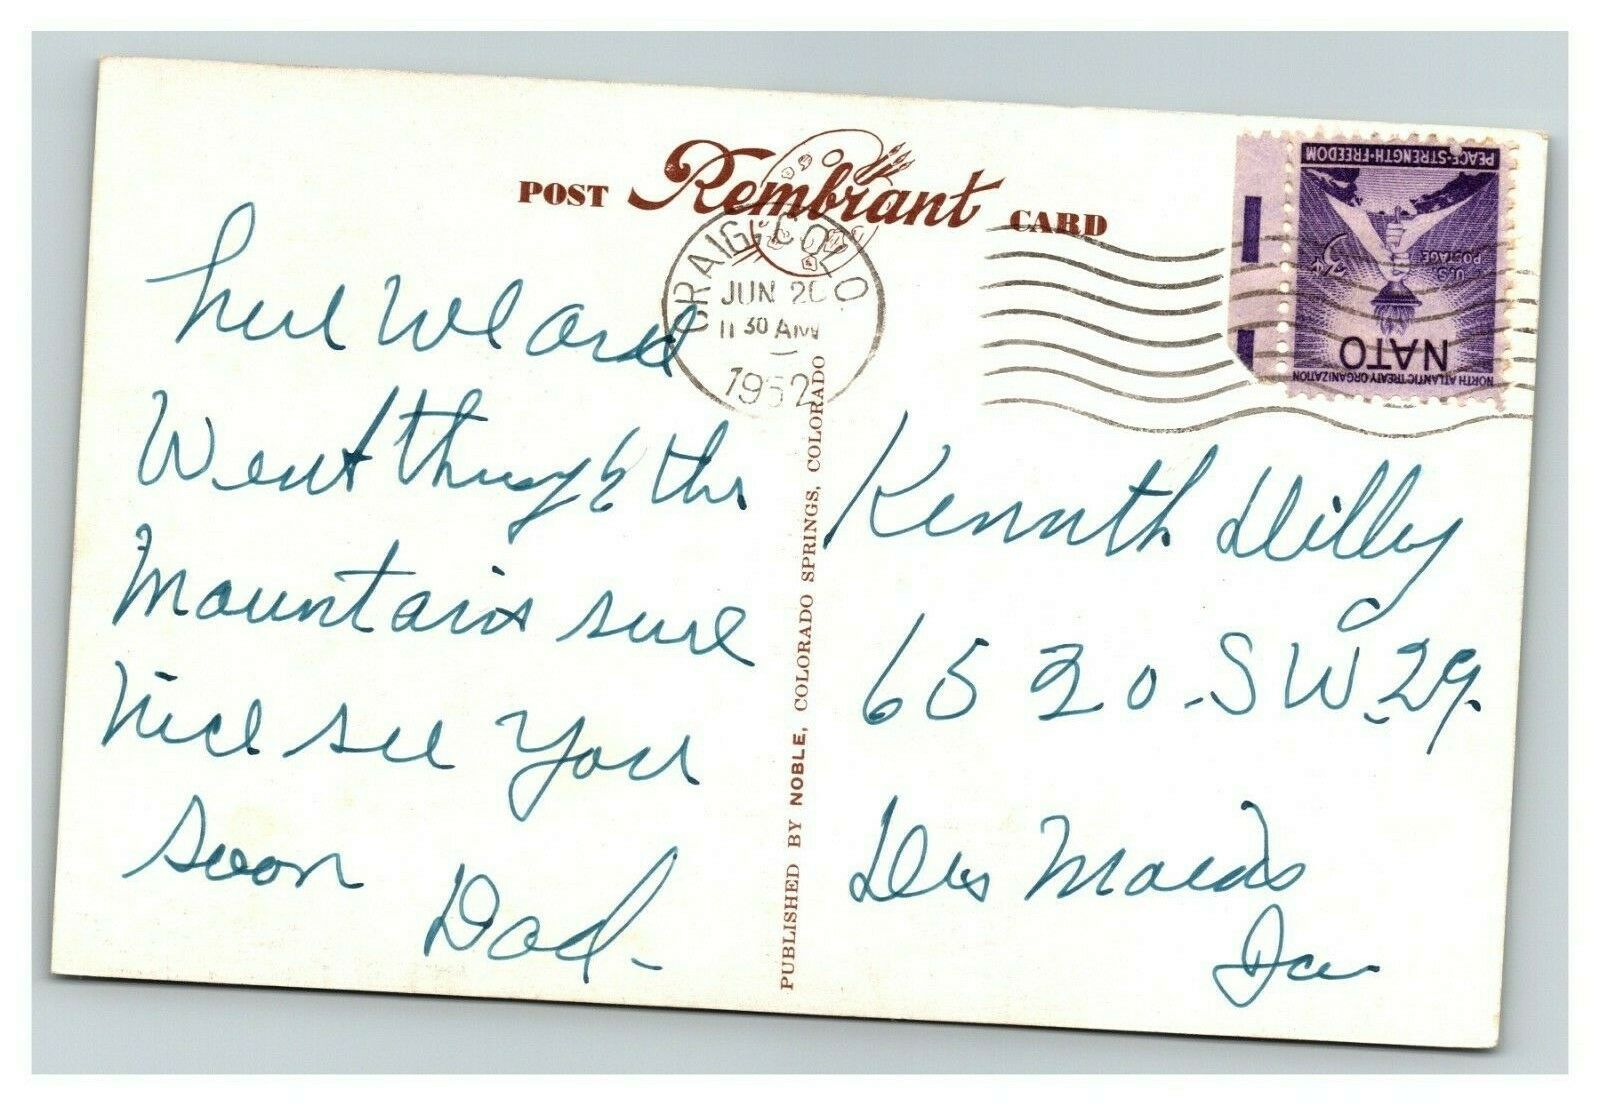 POST Rembrant CARD
CRAIG, COLO.
JUN 20
11 30 AM
1952
PEACE-STRENGTH-FREEDOM
U.S. POSTAGE
3¢
NATO
NORTH ATLANTIC TREATY ORGANIZATION
here we are
Went through the
Mountains sure
Nice see You
soon
Dad-
PUBLISHED BY NOBLE, COLORADO SPRINGS, COLORADO
Kenneth Dilley
6520-SW-29.
Des Moines
Ia